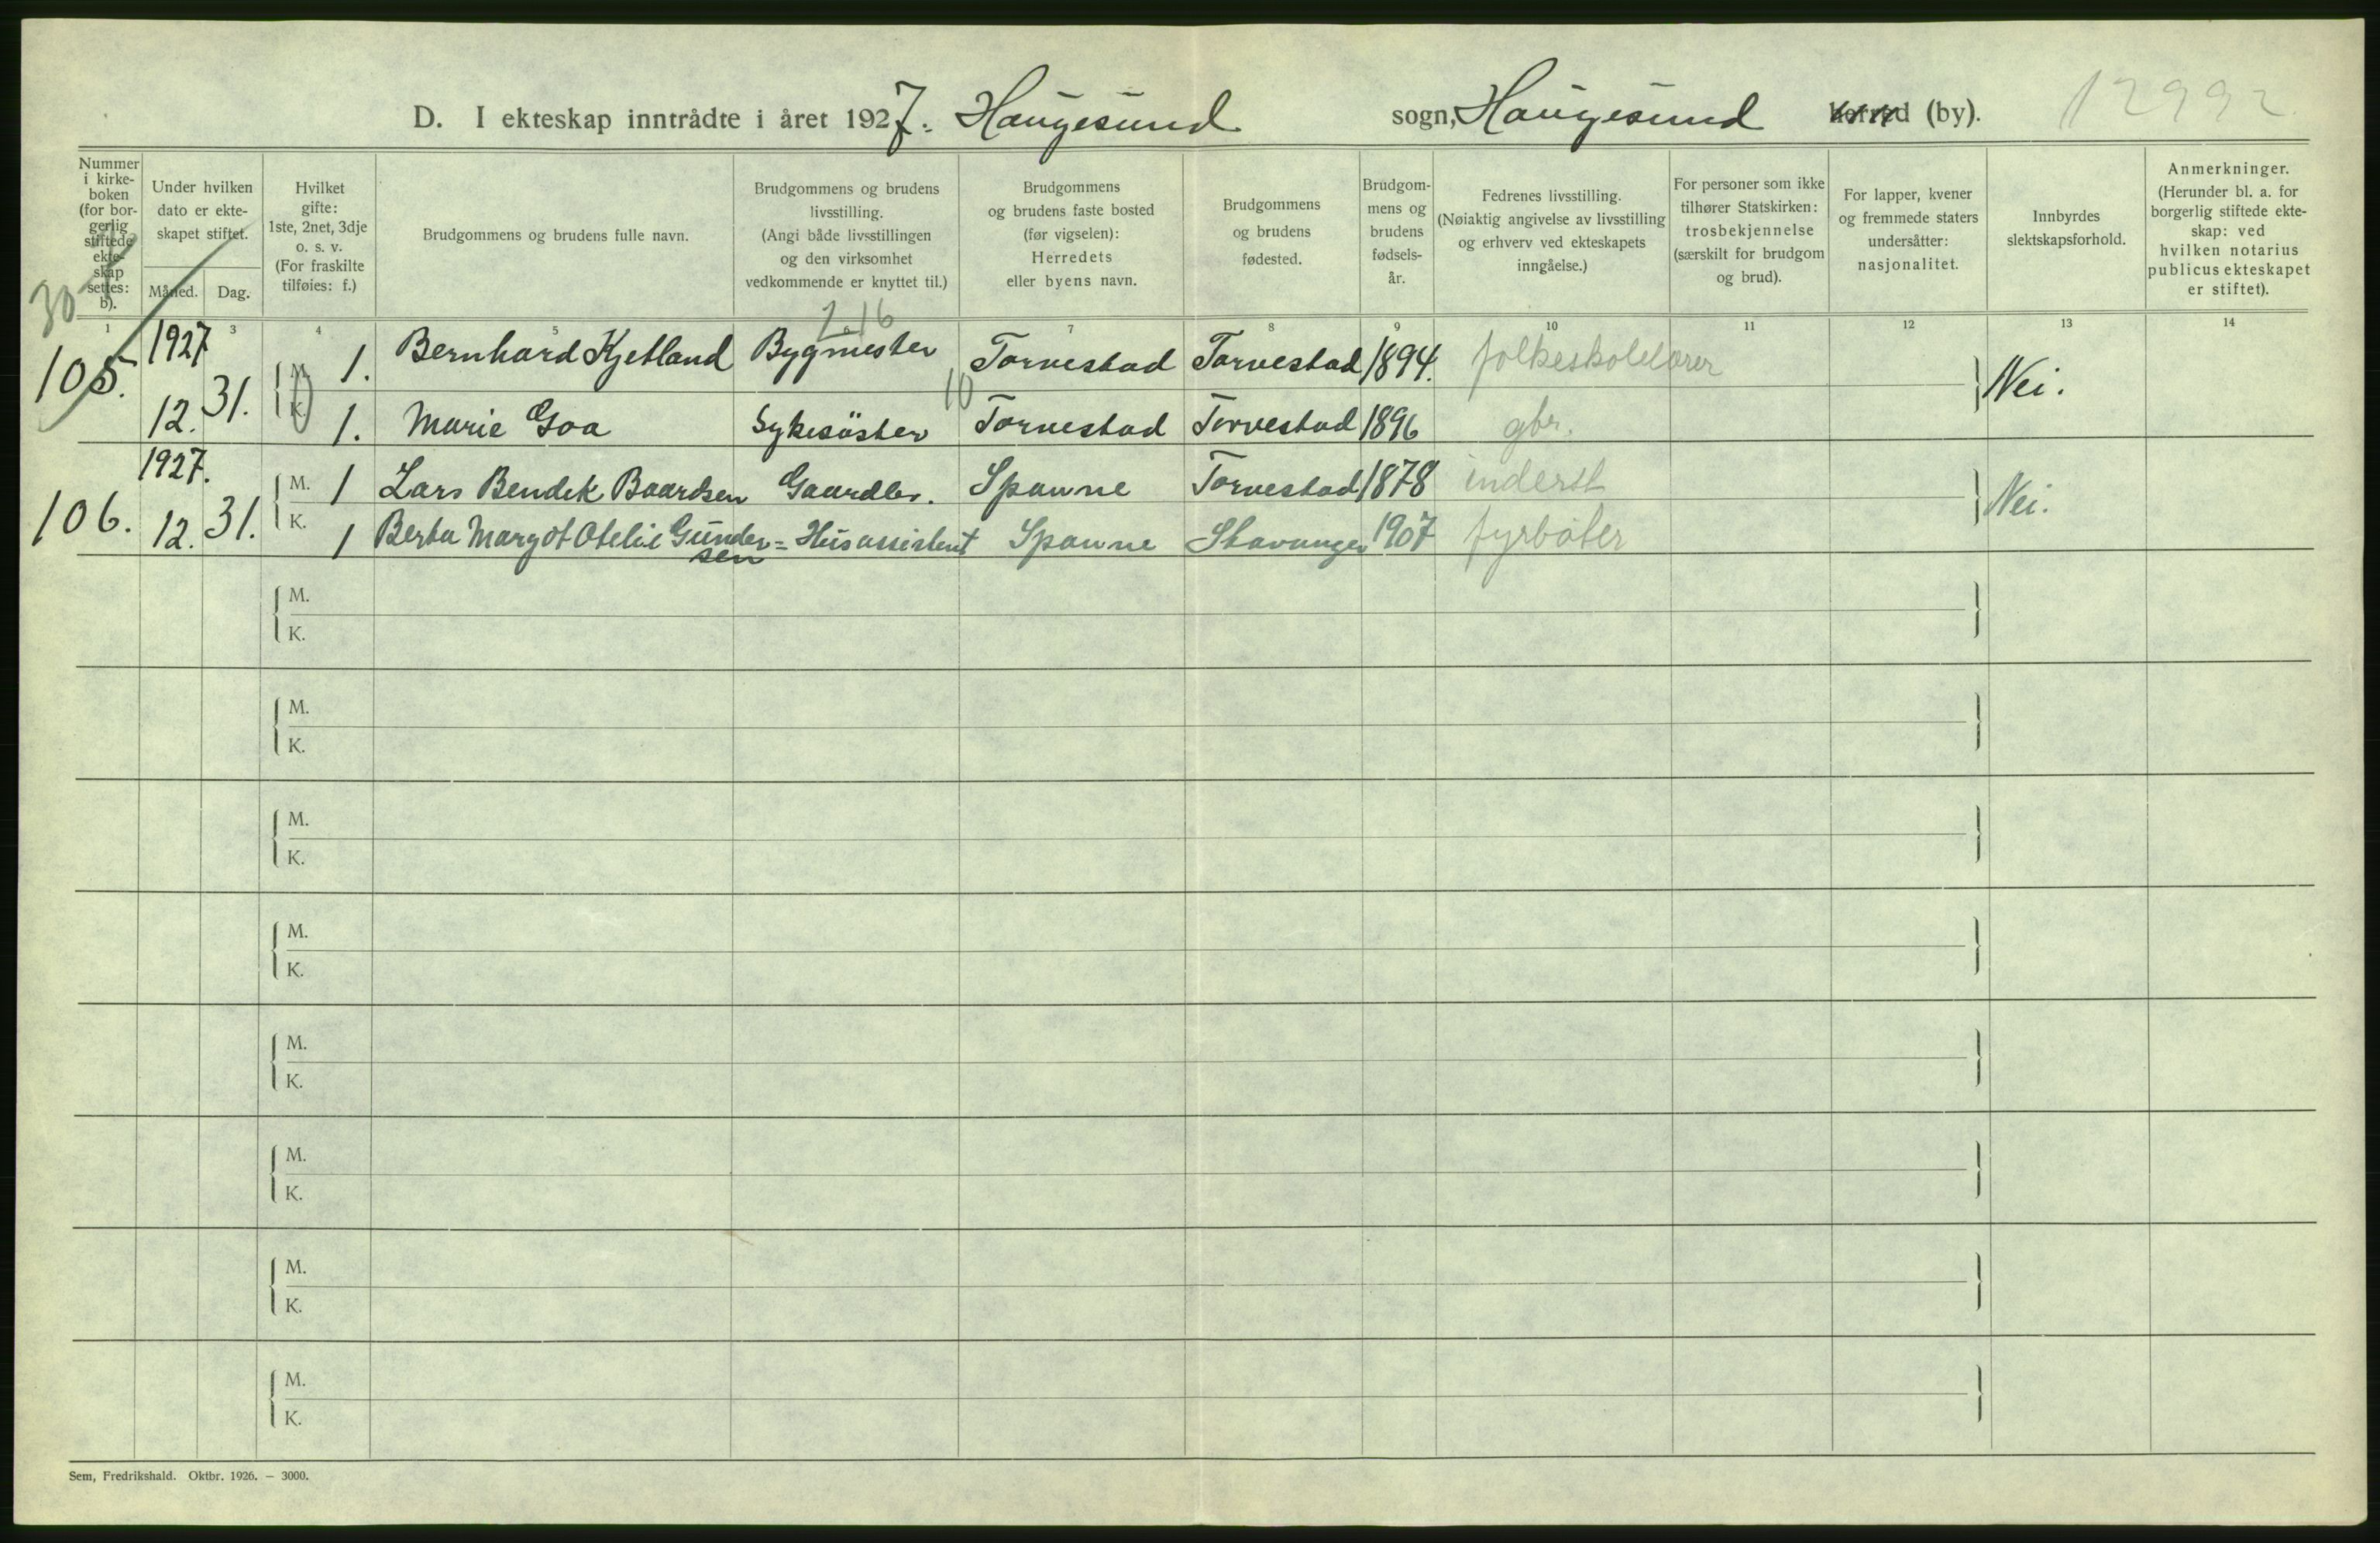 D. I ekteskap inntrådte i året 1927. Haugesund sogn, Haugesund herred (by). 12992
Nummer i kirke-boken (for bor-gerlig stiftede ekte-skap settes: b).
Under hvilken dato er ekte-skapet stiftet.
Måned. Dag.
Hvilket gifte: 1ste, 2net, 3dje o. s. v. (For fraskilte tilføies: f.)
Brudgommens og brudens fulle navn.
Brudgommens og brudens livsstilling. (Angi både livsstillingen og den virksomhet vedkommende er knyttet til.)
Brudgommens og brudens faste bosted (før vigselen): Herredets eller byens navn.
Brudgommens og brudens fødested.
Brudgom-mens og brudens fødsels-år.
Fedrenes livsstilling. (Nøiaktig angivelse av livsstilling og erhverv ved ekteskapets inngåelse.)
For personer som ikke tilhører Statskirken: trosbekjennelse (særskilt for brudgom og brud).
For lapper, kvener og fremmede staters undersåtter: nasjonalitet.
Innbyrdes slektskapsforhold.
Anmerkninger. (Herunder bl. a. for borgerlig stiftede ekte-skap: ved hvilken notarius publicus ekteskapet er stiftet).
30
1 3 4 5 7 8 9 10 11 12 13 14
105. 1927 12. 31. M. 1. Bernhard Kjetland Bygmester Torvestad Torvestad 1894. folkeskolelærer Nei.
K. 1. Marie Goa Sykesöster 10 Torvestad Torvestad 1896 gbr.
106. 1927. 12. 31. M. 1 Lars Bendik Baardsen Gaardbr. Spanne Torvestad 1878 inderst Nei.
K. 1 Berta Margot Otelie Gunder=sen Husassistent Spanne Stavanger 1907 fyrbøter
M.
K.
M.
K.
M.
K.
M.
K.
M.
K.
M.
K.
M.
K.
M.
K.
Sem, Fredrikshald. Oktbr. 1926. — 3000.